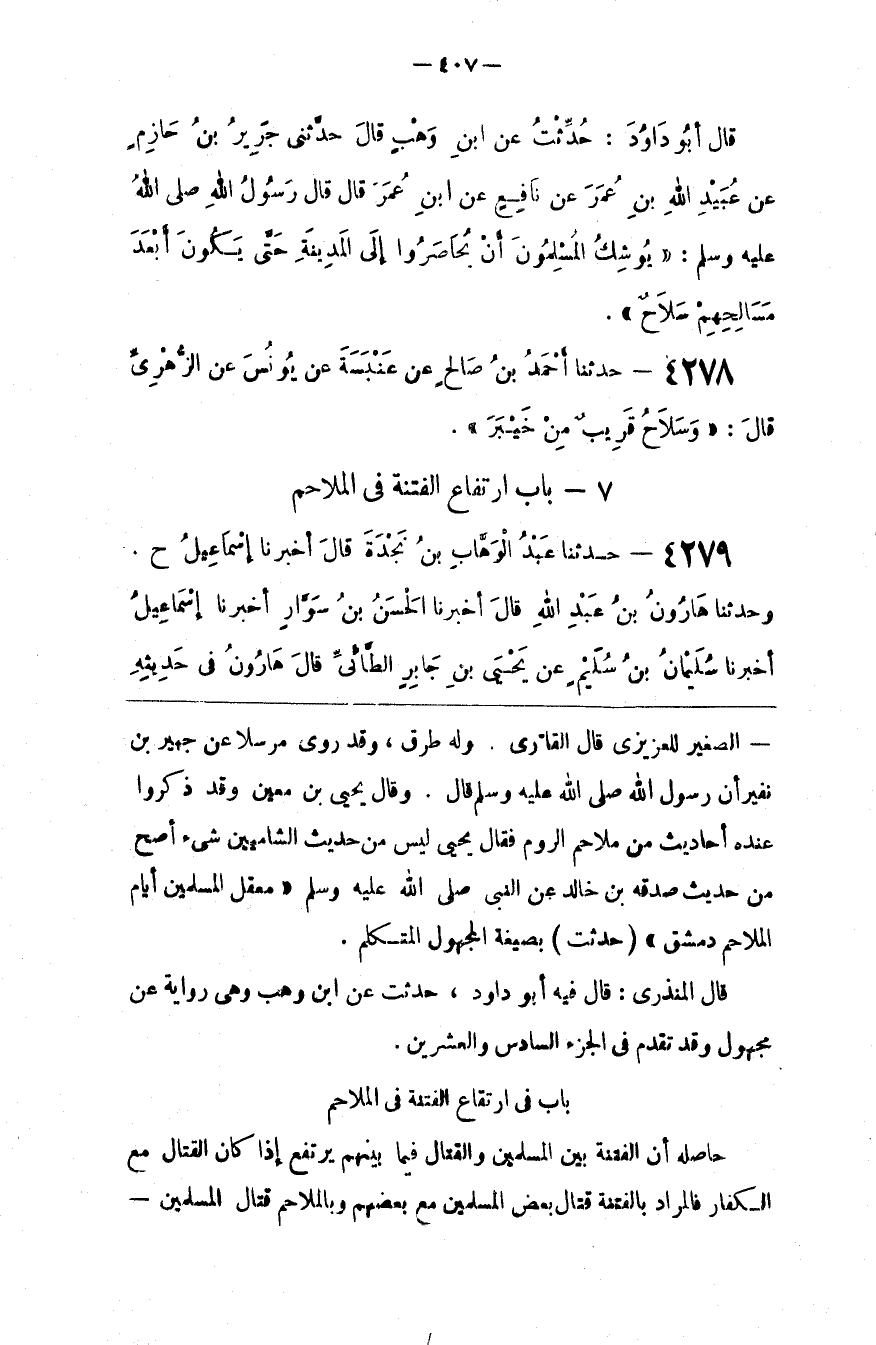 — ٤٠٧ —
قال أبُو دَاوُدَ : حُدِّثْتُ عن ابنِ وَهْبٍ قالَ حدَّثنى جَرِيرُ بنُ حَازِمٍ
عن عُبَيْدِ اللهِ بنِ عُمَرَ عن نَافِعٍ عن ابنِ عُمَرَ قال قال رَسُولُ اللهِ صلى اللهُ
عليه وسلم : « يُوشِكُ المُسْلِمُونَ أَنْ يُحَاصَرُوا إِلَى المَدِينَةِ حَتَّى يَكُونَ أَبْعَدَ
مَسَالِحِهِمْ سَلاَحٌ » .
٤٢٧٨ — حدثنا أَحْمَدُ بنُ صَالحٍ عن عَنْبَسَةَ عن يُونُسَ عن الزُّهْرِىِّ
قالَ : « وَسَلاَحُ قَرِيبٌ مِنْ خَيْبَرَ » .
٧ — باب ارتفاع الفتنة فى الملاحم
٤٢٧٩ — حدثنا عَبْدُ الْوَهَّابِ بنُ نَجْدَةَ قالَ أخبرنا إِسْمَاعِيلُ ح .
وحدثنا هَارُونُ بنُ عَبْدِ اللهِ قالَ أخبرنا الحَسَنُ بنُ سَوَّارٍ أخبرنا إِسْمَاعِيلُ
أخبرنا سُلَيْمَانُ بنُ سُلَيْمٍ عن يَحْيَى بنِ جَابِرٍ الطَّائىِّ قالَ هَارُونُ فى حَدِيثِهِ
— الصغير للعزيزى قال القارى . وله طرق ، وقد روى مرسلا عن جهير بن
نفيرأن رسول الله صلى الله عليه وسلم قال . وقال يحيى بن معين وقد ذكروا
عنده أحاديث من ملاحم الروم فقال يحيى ليس من حديث الشاميين شىء أصح
من حديث صدقه بن خالد عن النبى صلى الله عليه وسلم « معقل المسلمين أيام
الملاحم دمشق » (حدثت) بصيغة المجهول المتكلم .
قال المنذرى : قال فيه أبو داود ، حدثت عن ابن وهب وهى رواية عن
مجهول وقد تقدم فى الجزء السادس والعشرين .
باب فى ارتقاع الفتنة فى الملاحم
حاصله أن الفتنة بين المسلمين والقتال فيما بينهم يرتفع إذا كان القتال مع
الكفار فالمراد بالفتنة قتال بعض المسلمين مع بعضهم وبالملاحم قتال المسلمين —